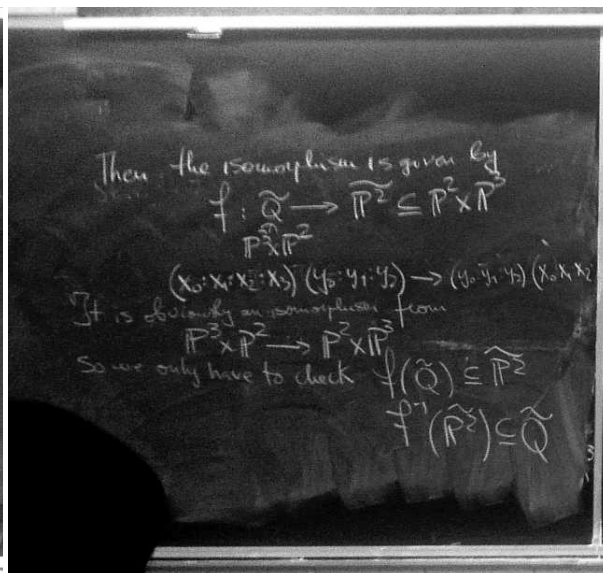 Then the isomorphism is given by
f : Q̃ → P̃² ⊆ P² × P³
P³ × P²
(x₀:x₁:x₂:x₃) (y₀:y₁:y₂) → (y₀:y₁:y₂) (x₀ x₁ x₂
It is obviously an isomorphism from
P³ × P² → P² × P³
So we only have to check f(Q̃) ⊆ P̃²
f⁻¹(P̃²) ⊆ Q̃